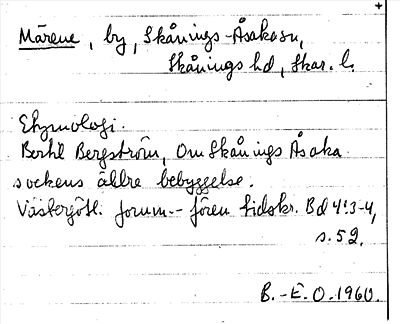 Märene, by, Skånings-Åsaka sn,
Skånings hd, Skar. l.
Etymologi.
Bertil Bergström, Om Skånings Åsaka
sockens äldre bebyggelse.
Västergötl. fornm.- fören tidskr. Bd 4:3-4,
s. 52.
B.-E. O. 1960.